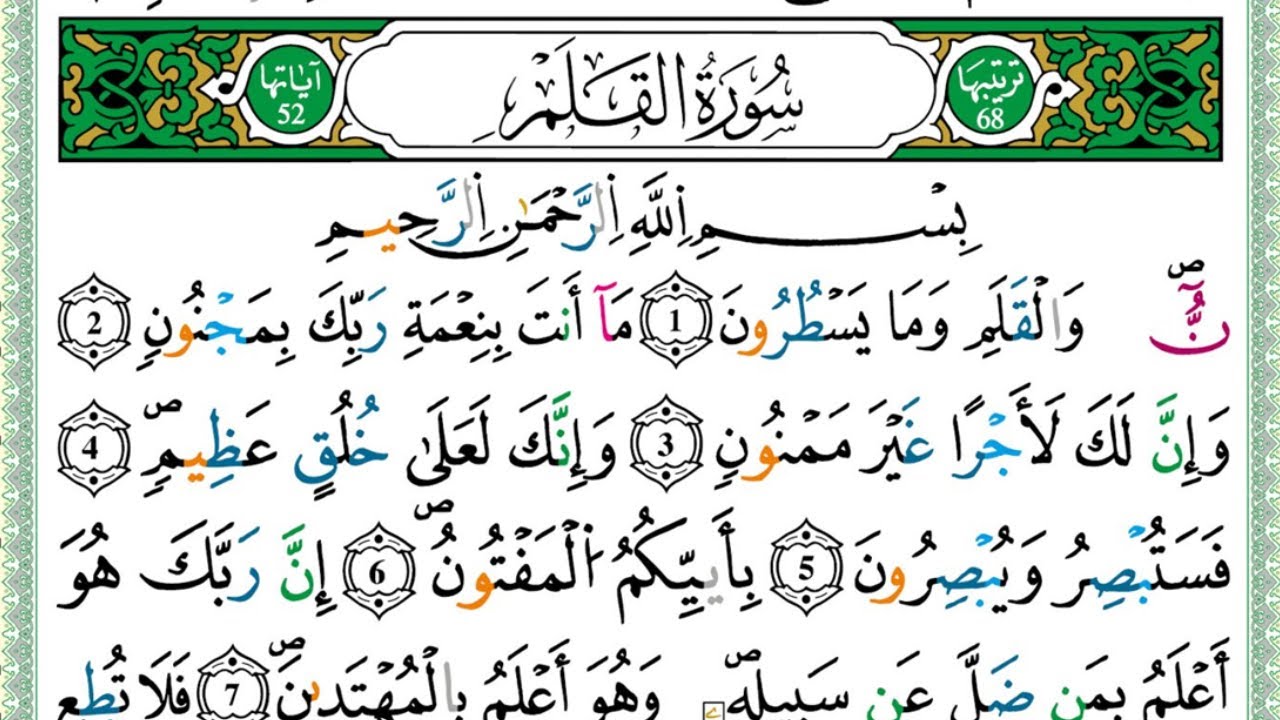 ترتيبها 68 سُورَةُ القَلَمِ آياتها 52
بِسْمِ اِ۬للَّهِ اِ۬لرَّحْمَٰنِ اِ۬لرَّحِيمِ
نَٓۖ وَالْقَلَمِ وَمَا يَسْطُرُونَ 1 مَآ أَنتَ بِنِعْمَةِ رَبِّكَ بِمَجْنُونٍ 2
وَإِنَّ لَكَ لَأَجْرًا غَيْرَ مَمْنُونٍ 3 وَإِنَّكَ لَعَلَىٰ خُلُقٍ عَظِيمٍۖ 4
فَسَتُبْصِرُ وَيُبْصِرُونَ 5 بِأَييِّكُمُ اُ۬لْمَفْتُونُۖ 6 إِنَّ رَبَّكَ هُوَ
أَعْلَمُ بِمَن ضَلَّ عَن سَبِيلِهِۖۦ وَهُوَ أَعْلَمُ بِالْمُهْتَدِينَۖ 7 فَلَا تُطِعِ